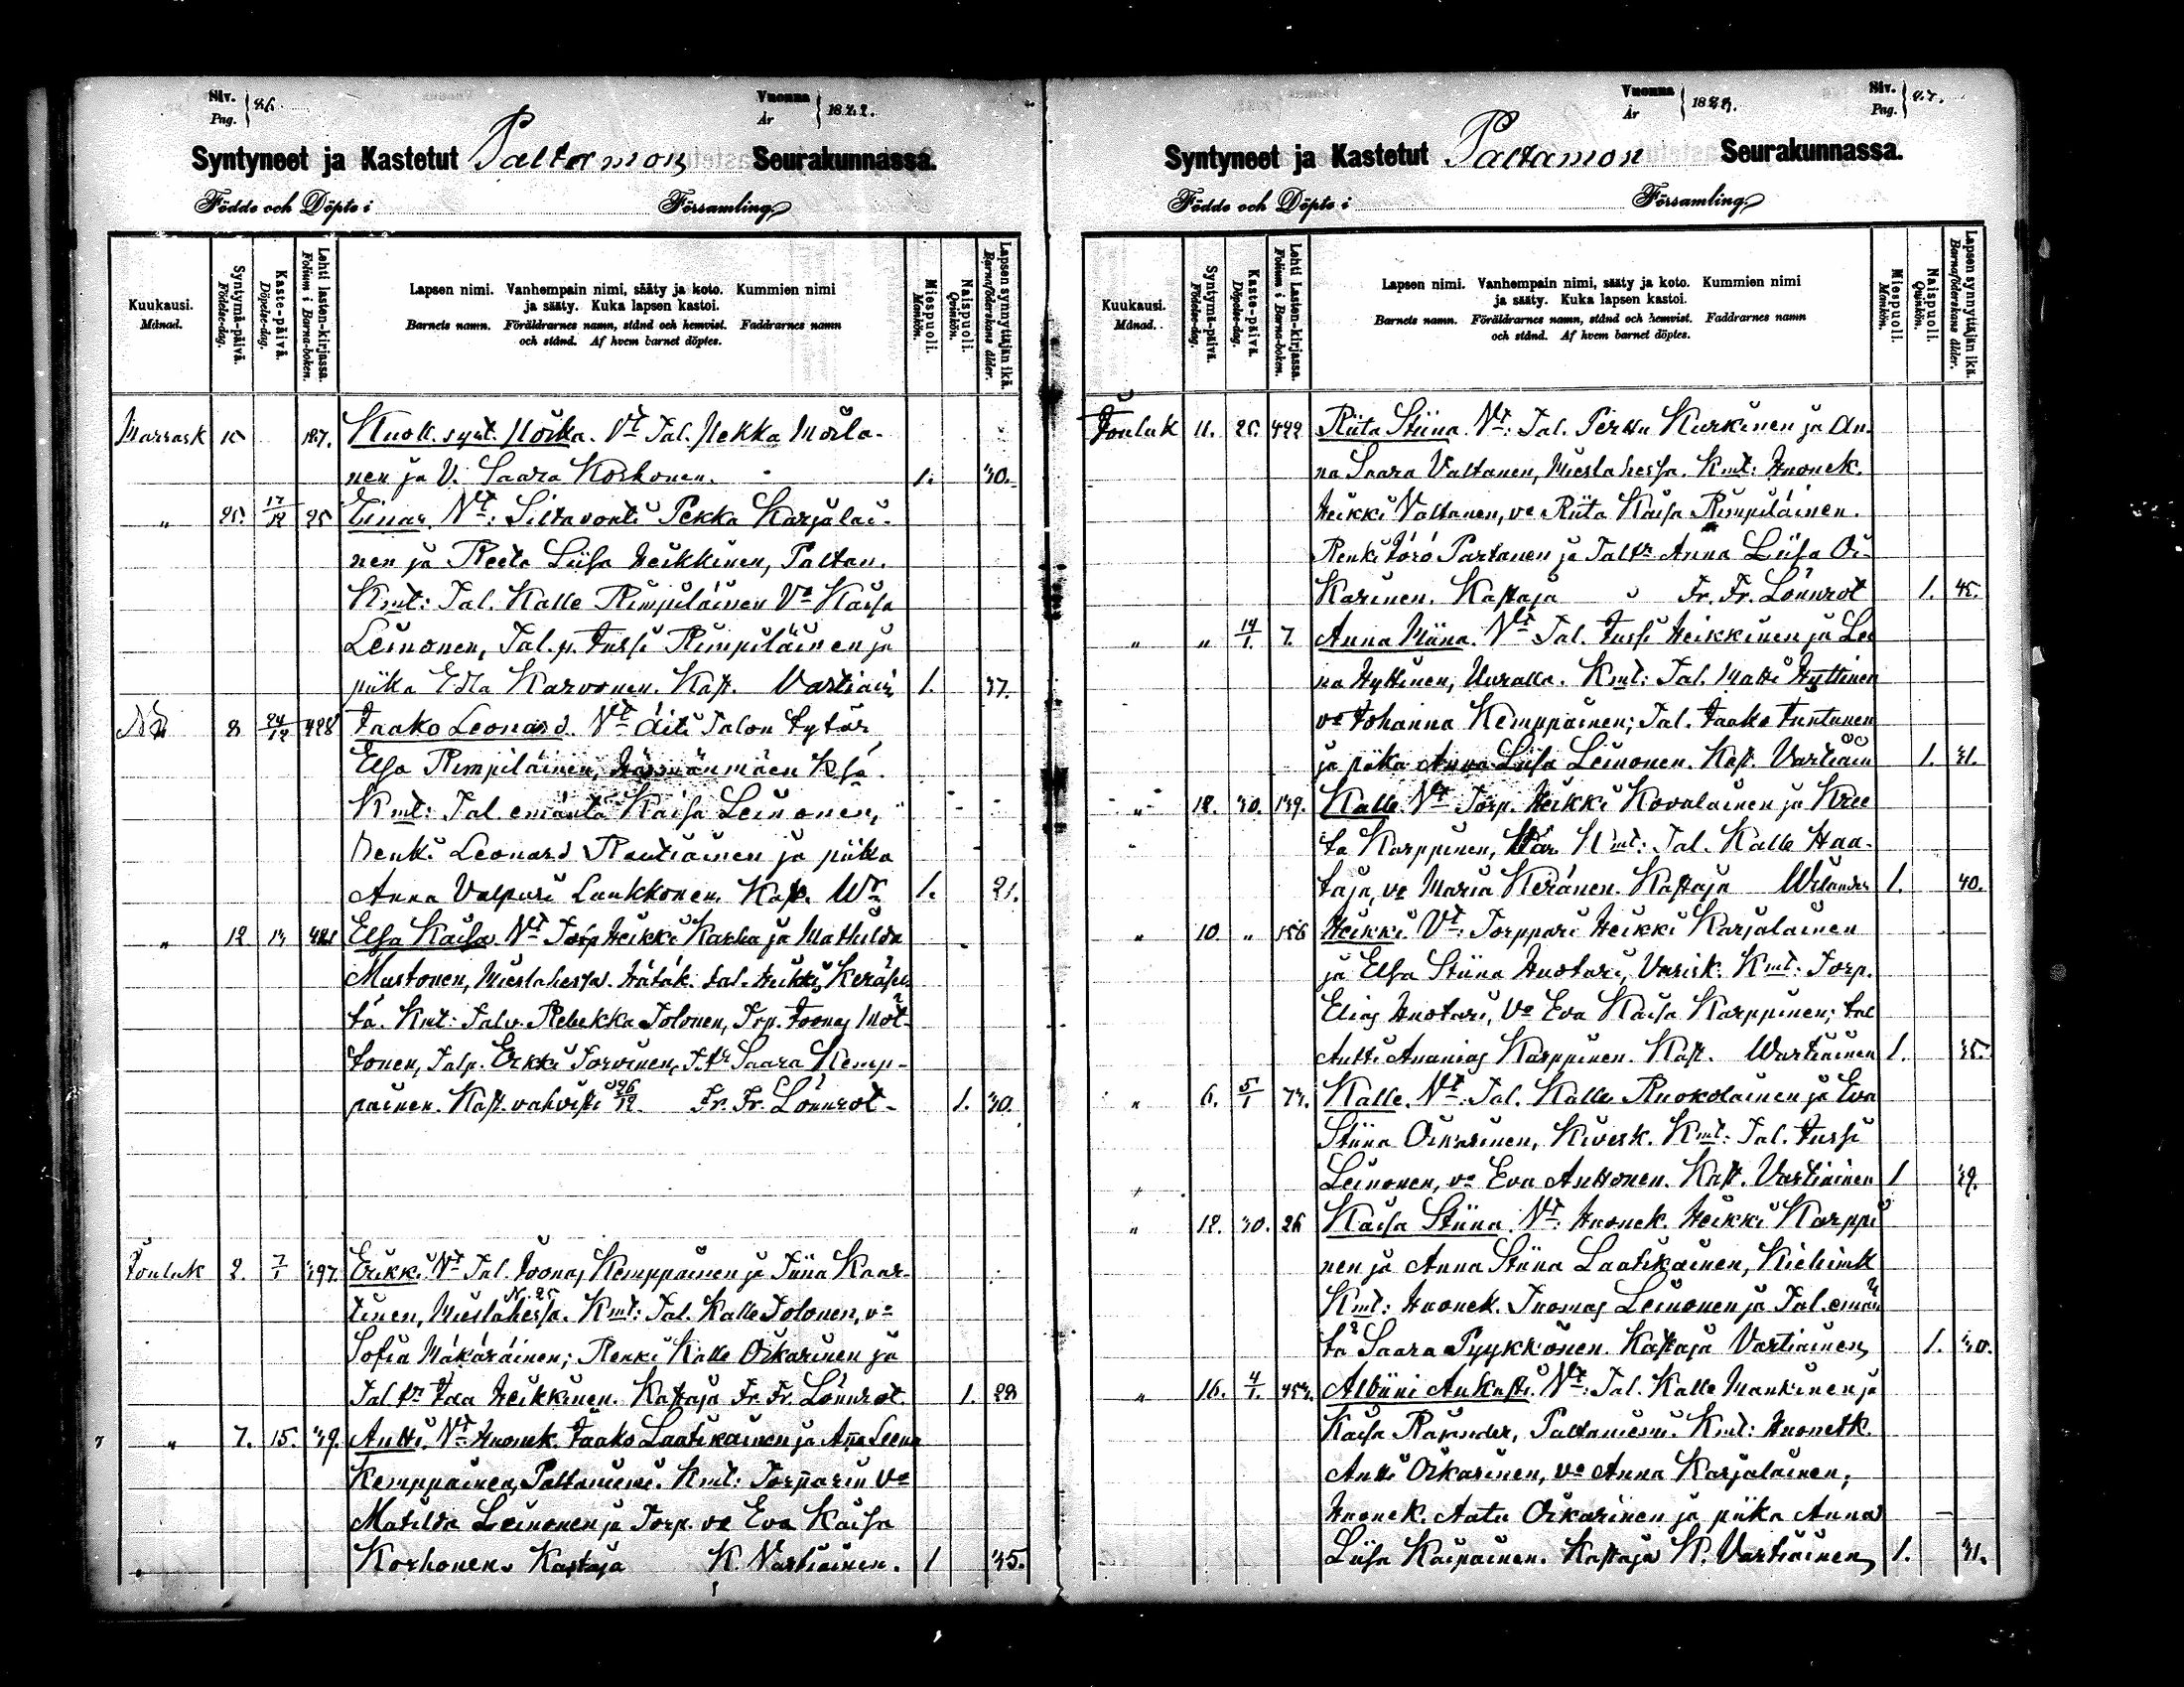 Siv. Pag. 26.
Vuonna År 1888.
Syntyneet ja Kastetut Paltamon Seurakunnassa.
Födde och Döpte i Församling
Kuukausi. Månad.
Syntymä-päivä. Födelse-dag.
Kaste-päivä. Döpelse-dag.
Lehti lasten-kirjassa. Folium i Barna-boken.
Lapsen nimi. Vanhempain nimi, sääty ja koto. Kummien nimi
ja sääty. Kuka lapsen kastoi.
Barnets namn. Föräldrarnes namn, stånd och hemvist. Faddrarnes namn
och stånd. Af hvem barnet döptes.
Miespuoli. Mankön.
Naispuoli. Qvinkön.
Lapsen synnyttäjän ikä. Barnaföderskans ålder.
Marrask 15 187. Kuoll. synt. Vt Tal. Pekka Moila-
nen ja V. Saara Korhonen. 1. 30.
" 25. 17/12 25 Einar. Vt: Siltavouti Pekka Karjalai-
nen ja Reeta Liisa Heikkinen, Paltan.
Kmt: Tal. Kalle Rimpiläinen Vo Kaisa
Leinonen, Tal. p. Jussi Rimpiläinen ja
piika Edla Karvonen. Kast. Vartiain 1. 37.
8 24/12 428 Jaako Leonard. Vt Äiti Talon tytär
Elsa Rimpiläinen, Härmänmäen
Kmt: Tal. emäntä Kaisa Leinonen,
Renki Leonard Rautiainen ja piika
Anna Valpuri Laukkonen. Kast. Wr 1. 21.
" 12 13 Elsa Kaisa. Vt Torp Heikki Karha ja Mathilda
Mustonen, Mieslahessa. Hätäk. tal. Heikki Keräsel-
tä. Kmt: Talv. Rebekka Tolonen, Trp. Joonas Möt-
tönen, Talp. Erkki Torvinen, T.tr Saara Kemp-
painen. Kast. vahvisti 26/12 Fr. Fr. Lönnrot. 1. 30.
Jouluk 2. 7/1 397. Erikki. Vt Tal. Joonas Kemppainen ja Tiina Kaar-
tinen, Mieslahessa. N. 25 Kmt: Tal. Kalle Tolonen, vo
Sofia Mäkäräinen; Renki Kalle Oikarinen ja
Tal tr Ida Heikkinen. Kastaja Fr. Fr. Lönnrot. 1. 28
" 7. 15. 39. Antti. Vt Huonek. Jaako Laatikainen ja Anna Leena
Kemppainen, Paltaniemi. Kmt: Torparin Vo
Matilda Leinonen ja Torp. vo Eva Kaisa
Korhonen. Kastaja K. Vartiainen. 1 35.
Vuonna År 1888.
Siv. Pag. 27.
Syntyneet ja Kastetut Paltamon Seurakunnassa.
Födde och Döpte i Församling
Kuukausi. Månad.
Syntymä-päivä. Födelse-dag.
Kaste-päivä. Döpelse-dag.
Lehti Lasten-kirjassa. Folium i Barna-boken.
Lapsen nimi. Vanhempain nimi, sääty ja koto. Kummien nimi
ja sääty. Kuka lapsen kastoi.
Barnets namn. Föräldrarnes namn, stånd och hemvist. Faddrarnes namn
och stånd. Af hvem barnet döptes.
Miespuoli. Mankön.
Naispuoli. Qvinkön.
Lapsen synnyttäjän ikä. Barnaföderskans ålder.
Jouluk 11. 26. 422 Riita Stiina. Vt: Tal. Perttu Kurkinen ja An-
na Saara Valtanen, Mieslahessa. Kmt: Huonek.
Heikki Valtanen, vo Riita Kaisa Rimpiläinen.
Renki Yörö Partanen ja Taltr Anna Liisa Oi-
karinen. Kastaja Fr. Fr. Lönnrot 1. 45.
" " 14/1. 7. Anna Miina. Vt Tal. Jussi Heikkinen ja Lee
na Hyttinen, Uuralla. Kmt: Tal. Matti Hyttinen
vo Johanna Kemppainen; Tal. Jaako Juntunen
ja piika Anna Liisa Leinonen. Kast. Vartiain 1. 31.
" 12. 30. 139. Kalle. Vt Torp. Heikki Kovalainen ja Kree
ta Karppinen, Här. Kmt: Tal. Kalle Haa-
taja, vo Maria Keränen. Kastaja Welander 1. 40.
" 10 " 156 Heikki. Vt: Torppari Heikki Karjalainen
ja Elsa Stiina Huotari, Varisk. Kmt: Torp.
Elias Huotari, Vo Eva Kaisa Karppinen; tal
Antti Ananias Karppinen. Kast. Wartiainen 1. 35.
" 6. 5/1 73. Kalle. Vt: Tal. Kalle Ruokolainen ja Eva
Stiina Oikarinen, Kivesk. Kmt: Tal. Jussi
Leinonen, vo Eva Anttonen. Kast. Vartiainen 1 39.
" 12. 30. 26 Kaisa Stiina. Vt: Huonek. Heikki Karppi
nen ja Anna Stiina Laatikainen, Kiehimk
Kmt: Huonek. Tuomas Leinonen ja Tal. emän
tä Saara Pyykkönen. Kastaja Vartiainen 1. 30.
" 16. 4/1. 453. Albiini Aukusti. Vt: Tal. Kalle Mankinen ja
Kaisa Räsander, Paltaniemi. Kmt: Huonetk.
Antti Oikarinen, vo Anna Karjalainen;
Huonek. Aatu Oikarinen ja piika Anna
Liisa Kaipainen. Kastaja K. Vartiainen 1. 31.